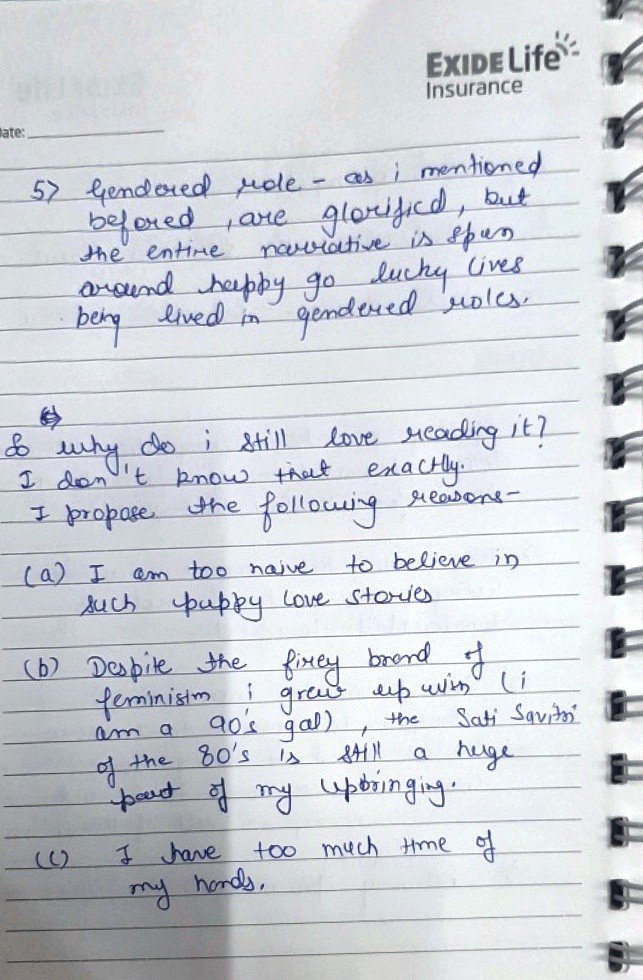 EXIDE Life
Insurance
Date:
5) Gendered role - as i mentioned
before d, are glorified, but
the entire narrative is spun
around happy go lucky lives
being lived in gendered roles.
So why do i still love reading it?
I don't know that exactly.
I propose the following reasons-
(a) I am too naive to believe in
such puppy love stories
(b) Despite the firey brand of
feminism i grew up with (i
am a 90's gal), the Sati Savitri
of the 80's is still a huge
part of my upbringing.
(c) I have too much time of
my hands.